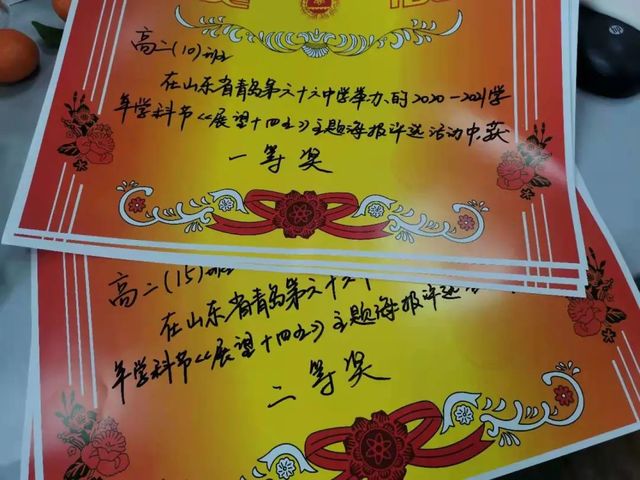 高二(10)班
在山东省青岛第六十六中学举办的2020-2021学
年学科节《展望十四五》主题海报评选活动中,获
一等奖
高二(15)班
在山东省青岛第六十六中
年学科节《展望十四五》主题海报评选
二等奖